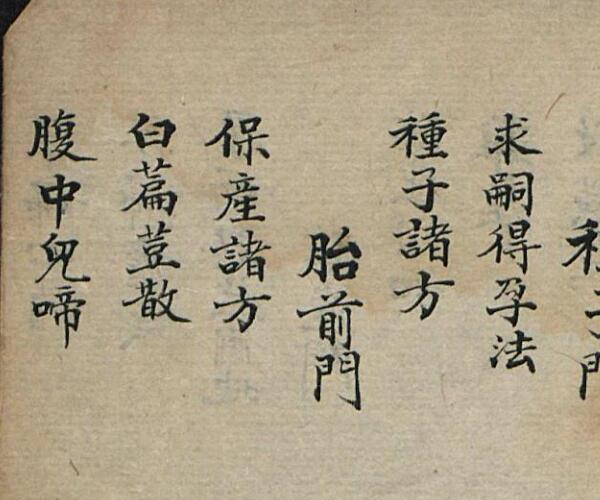 種子門
求嗣得孕法
種子諸方
胎前門
保産諸方
白萹荳散
腹中兒啼